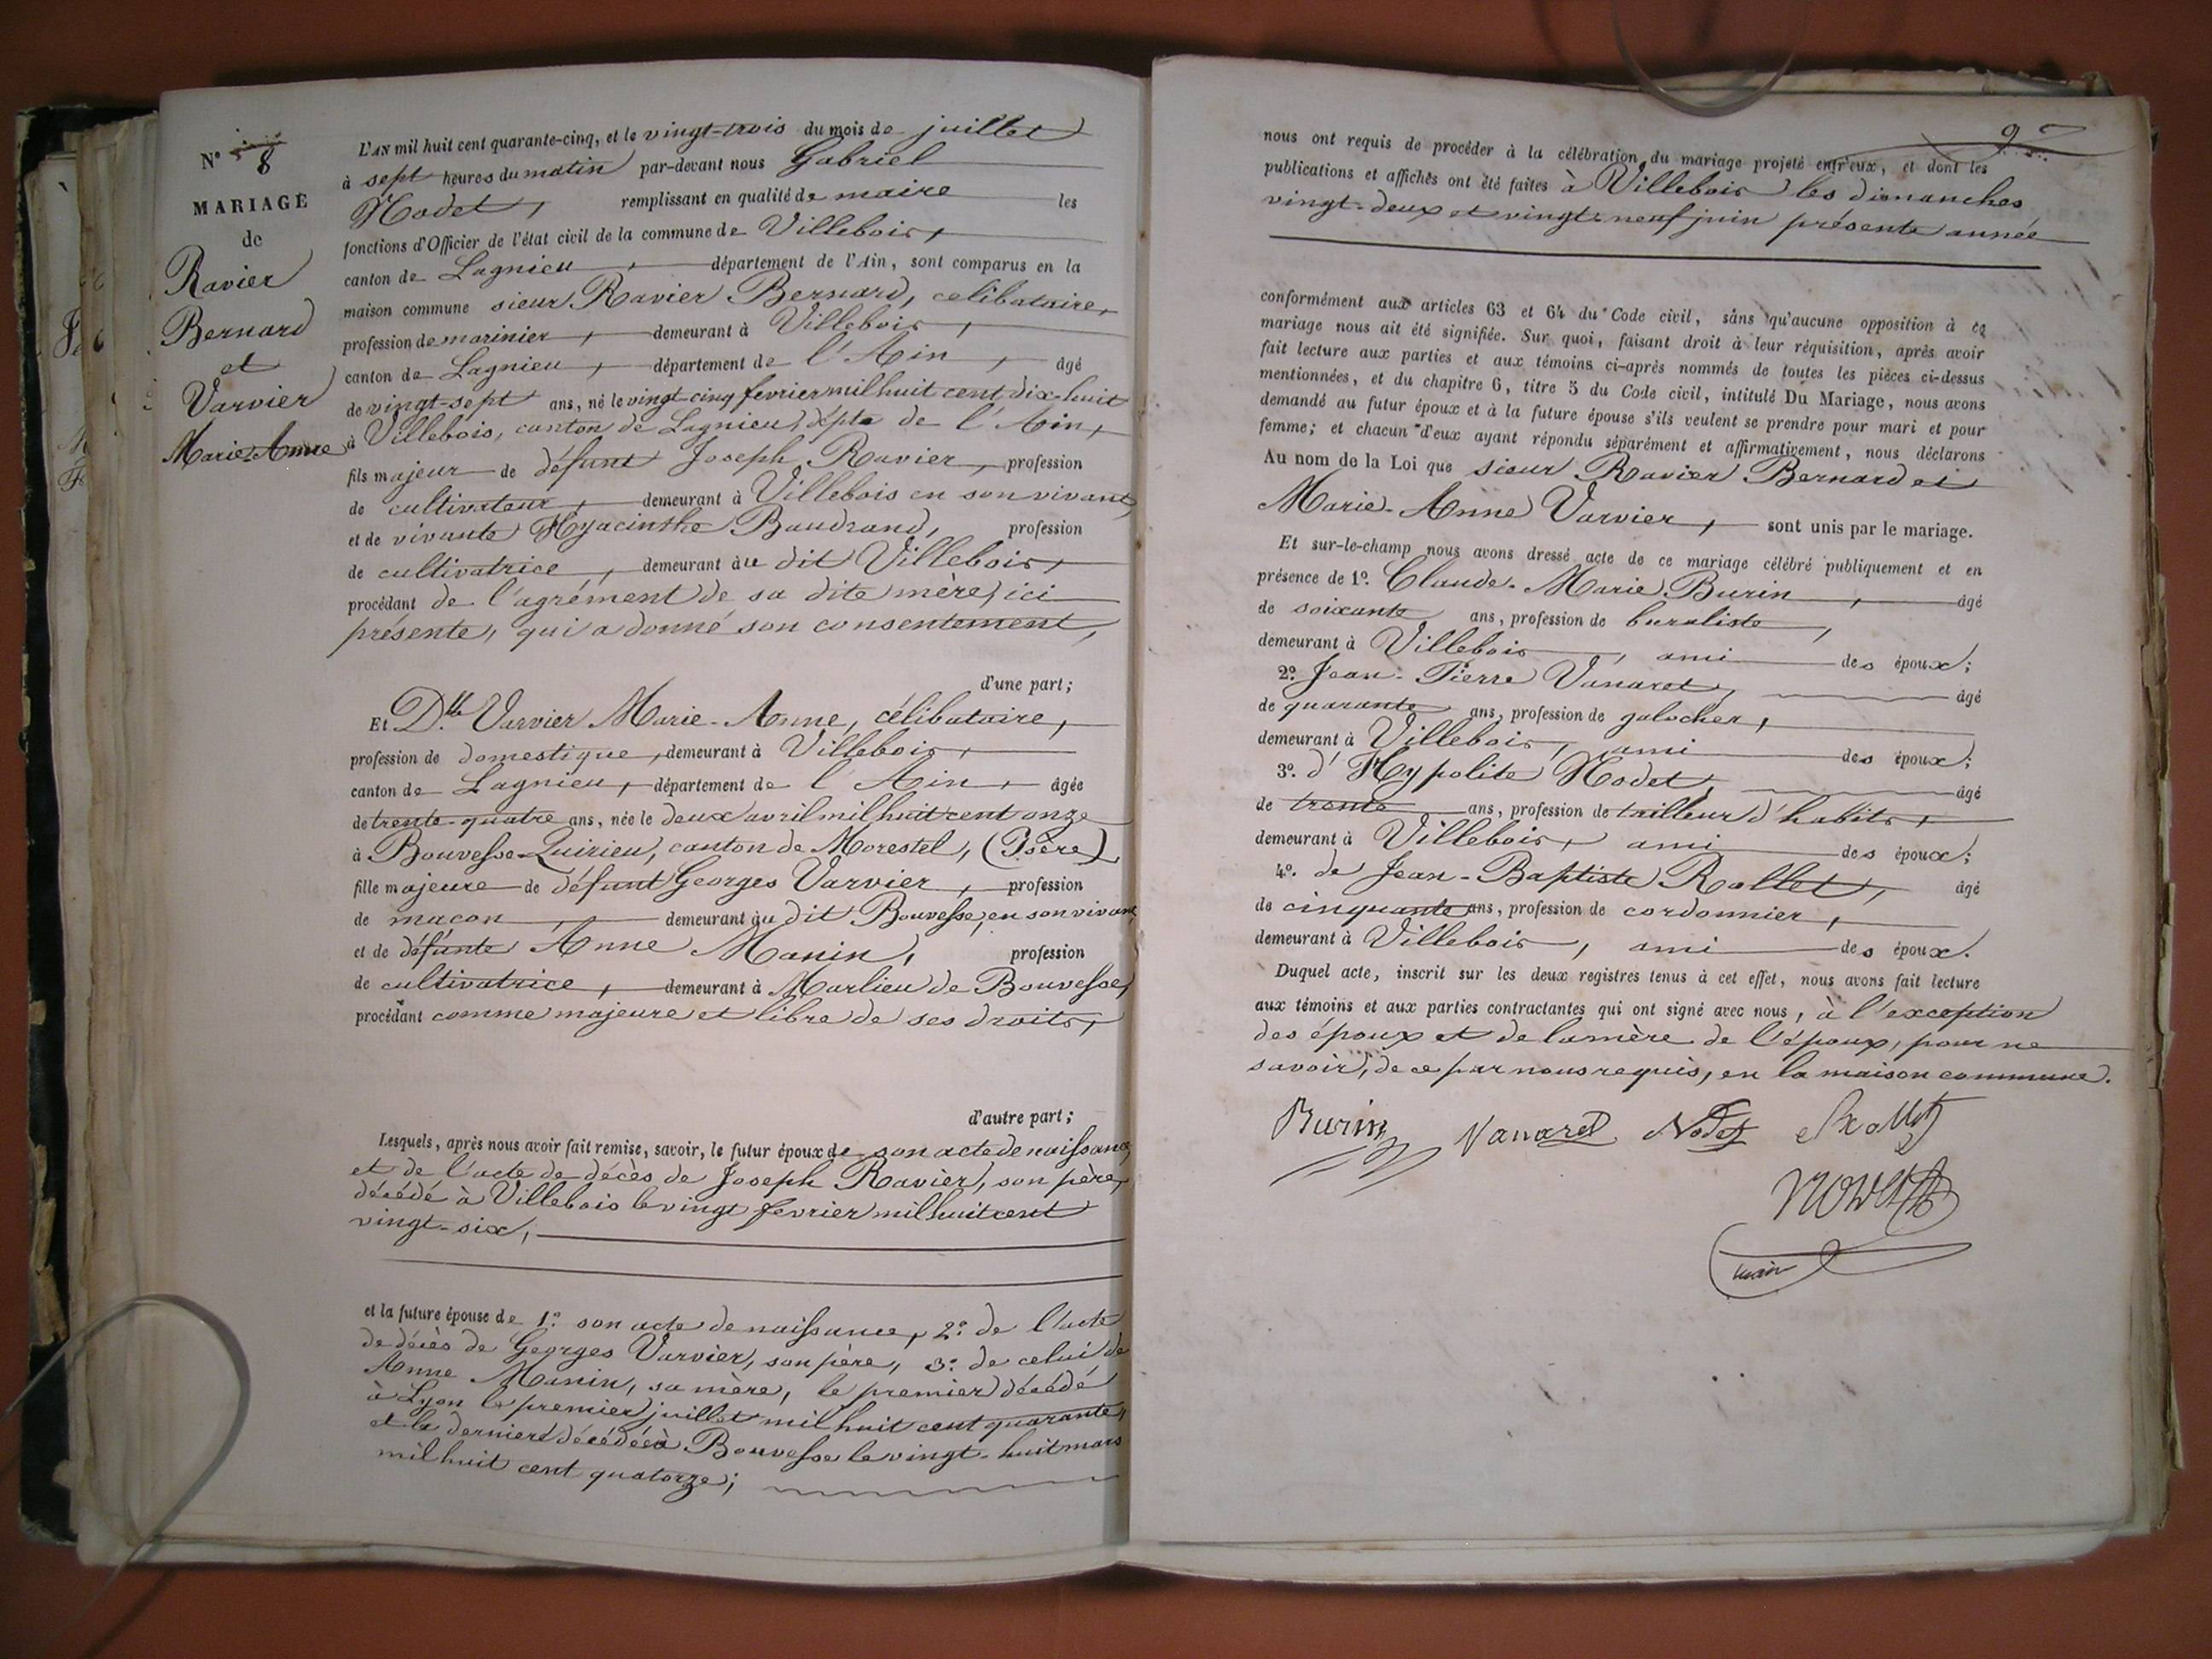 N° 8
MARIAGE
de
Ravier
Bernard
et
Varvier
Marie-Anne
L'AN mil huit cent quarante-cinq, et le vingt-trois du mois de juillet
à sept heures du matin par-devant nous Gabriel
Nodet, remplissant en qualité de maire les
fonctions d'Officier de l'état civil de la commune de Villebois,
canton de Lagnieu, département de l'Ain, sont comparus en la
maison commune sieur Ravier Bernard, celibataire,
profession de marinier, demeurant à Villebois,
canton de Lagnieu, département de l'Ain, âgé
de vingt-sept ans, né le vingt-cinq fevrier mil huit cent dix-huit
à Villebois, canton de Lagnieu, dépte de l'Ain,
fils majeur de défunt Joseph Ravier, profession
de cultivateur, demeurant à Villebois en son vivant,
et de vivante Hyacinthe Baudrand, profession
de cultivatrice, demeurant àu dit Villebois,
procédant de l'agrément de sa dite mère, ici
présente, qui a donné son consentement,
d'une part;
Et Dlle Varvier Marie-Anne, célibataire,
profession de domestique, demeurant à Villebois,
canton de Lagnieu, département de l'Ain, âgée
de trente-quatre ans, née le deux avril mil huit cent onze
à Bouvesse-Quirieu, canton de Morestel, (Isère)
fille majeure de défunt Georges Varvier, profession
de maçon, demeurant àu dit Bouvesse, en son vivant,
et de défunte Anne Manin, profession
de cultivatrice, demeurant à Marlieu de Bouvesse,
procédant comme majeure et libre de ses droits,
d'autre part;
Lesquels, après nous avoir fait remise, savoir, le futur époux de son acte de naissance,
et de l'acte de décès de Joseph Ravier, son père,
décédé à Villebois le vingt fevrier mil huit cent
vingt-six,
et la future épouse de 1°. son acte de naissance, 2°. de l'acte
de décès de Georges Varvier, son père, 3°. de celui de
Anne Manin, sa mère, le premier décédé
à Lyon le premier juillet mil huit cent quarante,
et la derniere décédée à Bouvesse le vingt-huit mars
mil huit cent quatorze;
nous ont requis de procéder à la célébration du mariage projeté entr'eux, et dont les
publications et affiches ont été faites à Villebois les dimanches
vingt-deux et vingt-neuf juin présente année
conformément aux articles 63 et 64 du Code civil, sans qu'aucune opposition à ce
mariage nous ait été signifiée. Sur quoi, faisant droit à leur réquisition, après avoir
fait lecture aux parties et aux témoins ci-après nommés de toutes les pièces ci-dessus
mentionnées, et du chapitre 6, titre 5 du Code civil, intitulé Du Mariage, nous avons
demandé au futur époux et à la future épouse s'ils veulent se prendre pour mari et pour
femme; et chacun d'eux ayant répondu séparément et affirmativement, nous déclarons
Au nom de la Loi que sieur Ravier Bernard et
Marie-Anne Varvier, sont unis par le mariage.
Et sur-le-champ nous avons dressé acte de ce mariage célébré publiquement et en
présence de 1°. Claude-Marie Burin, âgé
de soixante ans, profession de buraliste,
demeurant à Villebois, ami des époux;
2°. Jean-Pierre Vanaret, âgé
de quarante ans, profession de galocher,
demeurant à Villebois, ami des époux;
3°. d'Hypolite Nodet, âgé
de trente ans, profession de tailleur d'habits,
demeurant à Villebois, ami des époux;
4°. de Jean-Baptiste Rollet, âgé
de cinquante ans, profession de cordonnier,
demeurant à Villebois, ami des époux.
Duquel acte, inscrit sur les deux registres tenus à cet effet, nous avons fait lecture
aux témoins et aux parties contractantes qui ont signé avec nous, à l'exception
des époux et de la mère de l'époux, pour ne
savoir, de ce par nous requis, en la maison commune.
Burin Vanaret Nodet Rollet
Nodet
maire